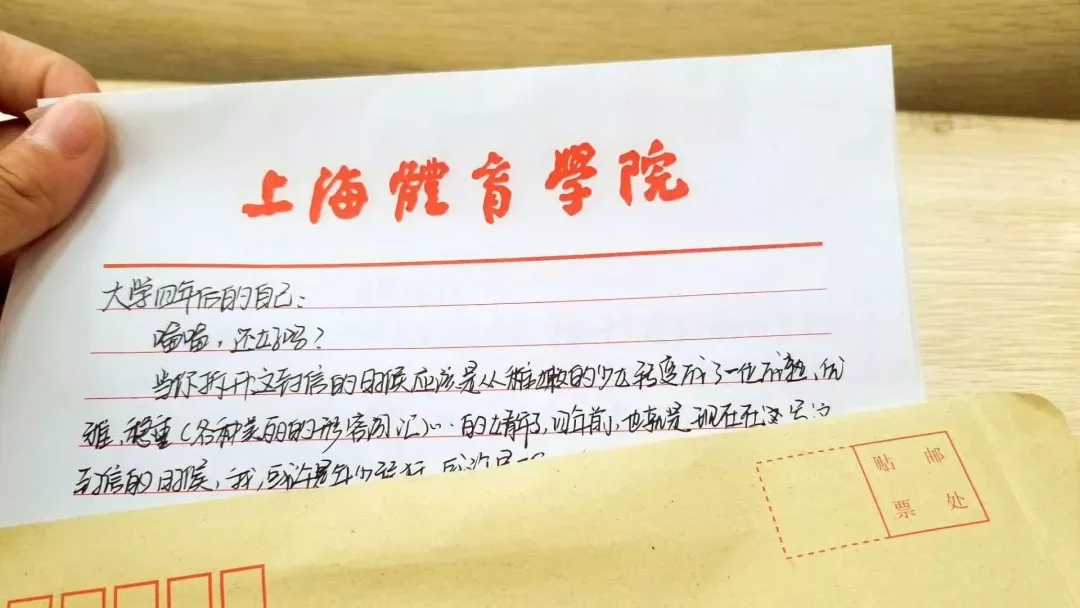 上海體育學院
大学四年后的自己：
喵喵，还好吗？
当你拆开这封信的时候应该是从稚嫩的少女转变成了一位成熟、优
雅、稳重（各种美丽的形容词汇）的女青年了，四年前，也就是现在在这
封信的时候，我，或许是年少轻狂，或许是
贴邮
票处